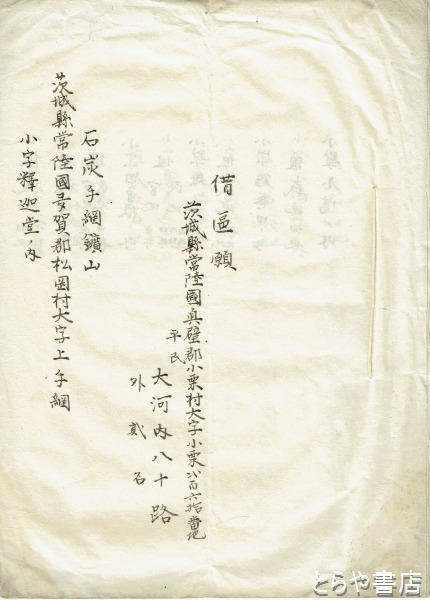 借區願
茨城縣常陸國眞壁郡小栗村大字小栗八百六拾番地
平民
大河内八十路
外貳名
石炭手綱鑛山
茨城縣常陸國多賀郡松岡村大字上手綱
小字釋迦堂ノ内
とらや書店